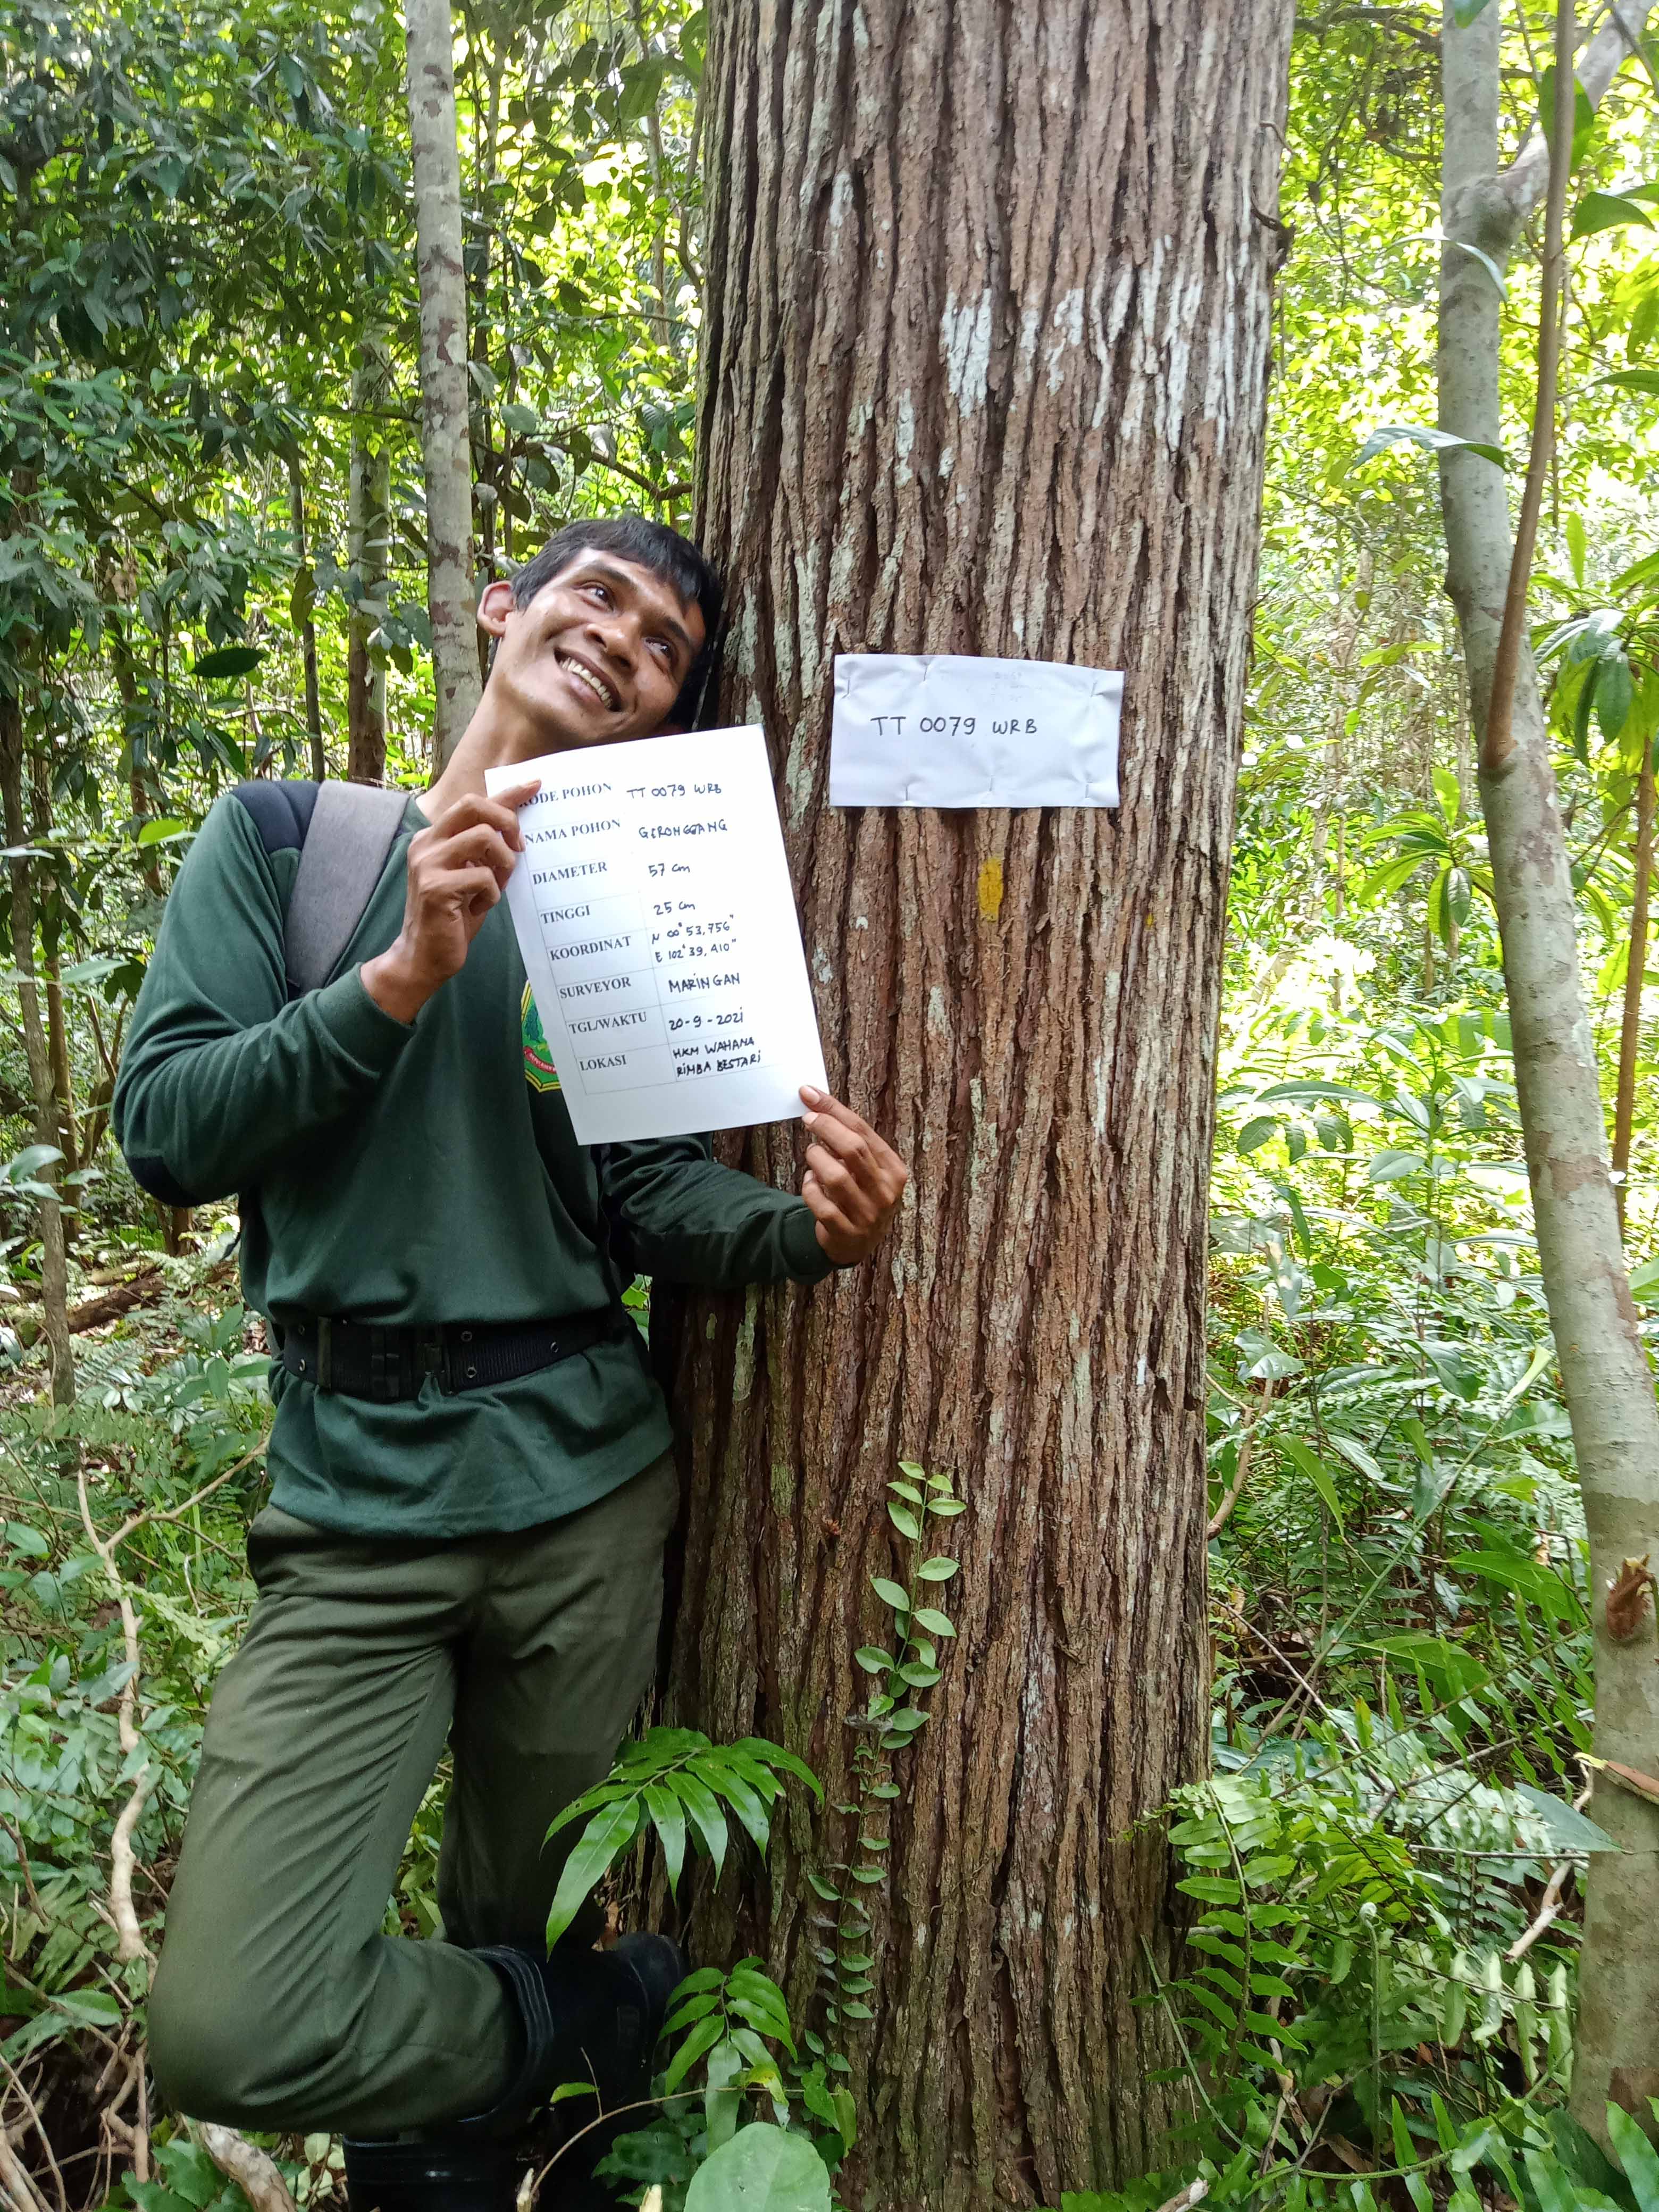 TT 0079 WRB
KODE POHON TT 0079 WRB
NAMA POHON GERONGGANG
DIAMETER 57 cm
TINGGI 25 cm
KOORDINAT N 00° 53,756"
E 102° 39,410"
SURVEYOR MARINGAN
TGL/WAKTU 20-9-2021
LOKASI HKM WAHANA
RIMBA BESTARI